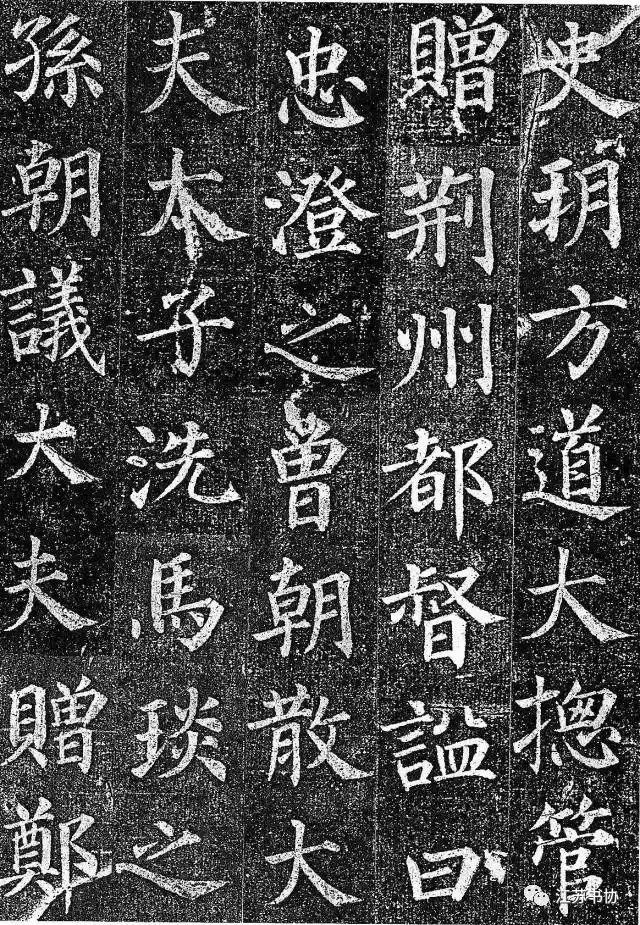 史朔方道大摠管
贈荆州都督謚曰
忠澄之曾朝散大
夫太子洗馬琰之
孫朝議大夫贈鄭
江苏书协